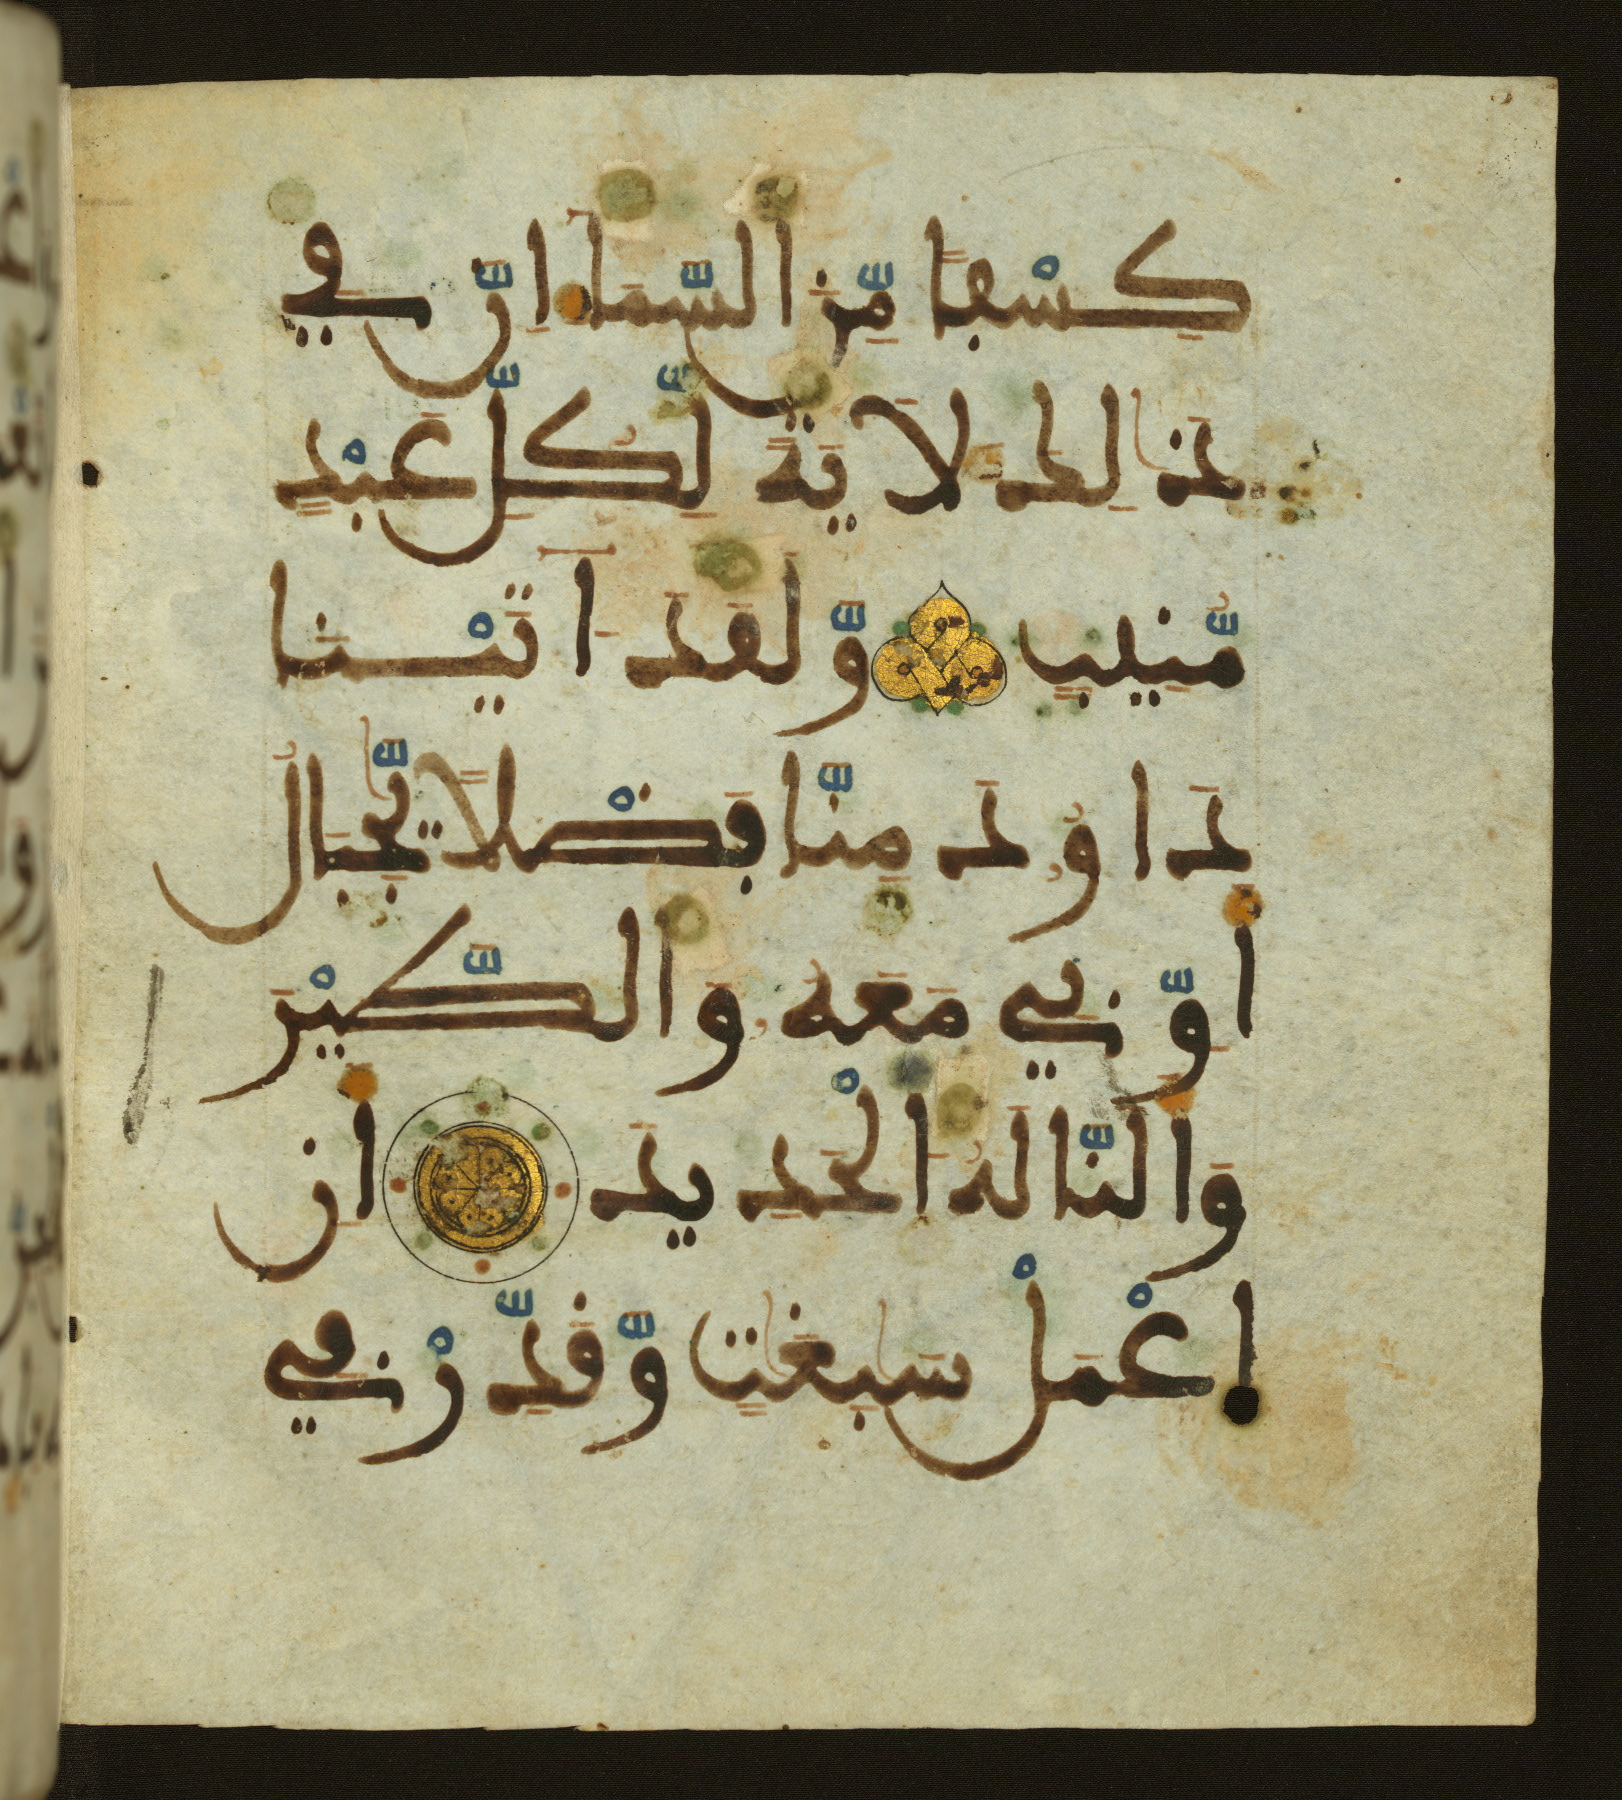 كِسْفًا مِّنَ السَّمَا إِنَّ فِي
ذَٰلِكَ لَآيَةً لِّكُلِّ عَبْدٍ
مُّنِيبٍ وَّلَقَدَ اٰتَيْنَا
دَاوُدَ مِنَّا فَضْلًا يَّٰجِبَالُ
أَوِّبِي مَعَهُ وَالطَّيْرَ
وَأَلَنَّا لَهُ الْحَدِيدَ أَنِ
اعْمَلْ سَٰبِغَٰتٍ وَّقَدِّرْ فِي